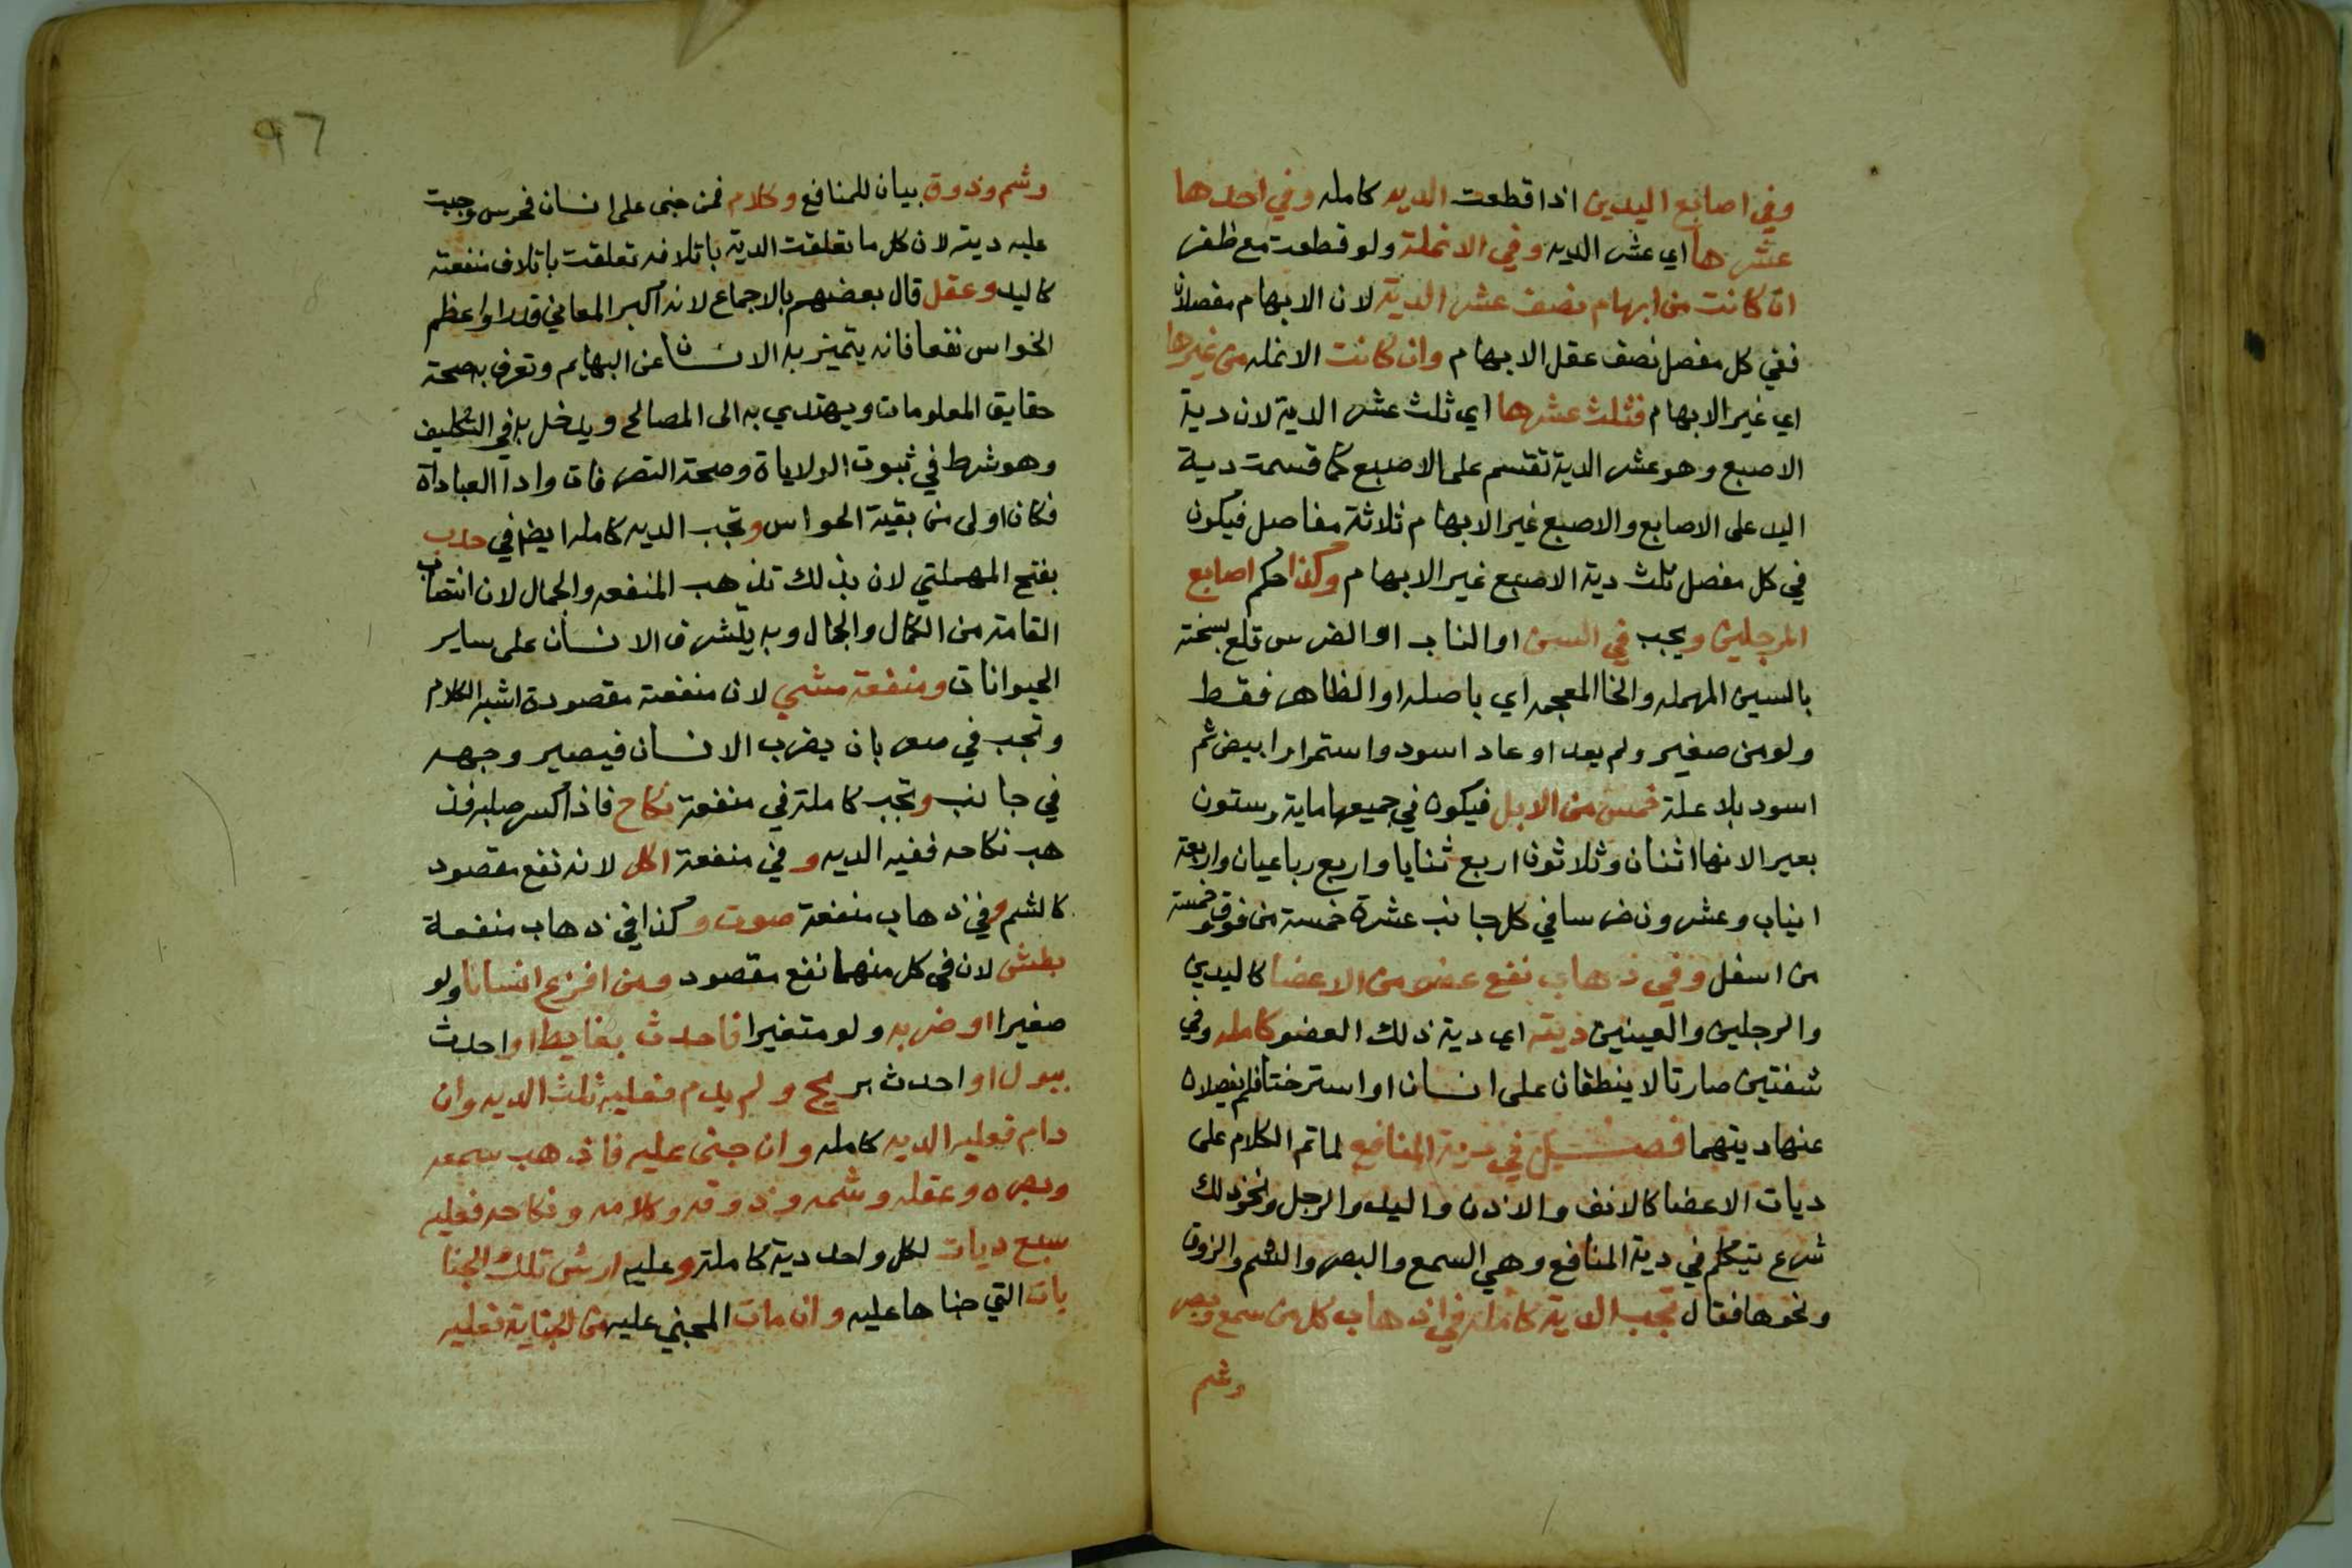 وفي اصابع اليدين اذا قطعت الديه كامله وفي احدها
عشرها اي عشر الديه وفي الانملة ولو قطعت مع ظفر
ان كانت من ابهام نصف عشر الدية لان الابهام مفصلان
ففي كل مفصل نصف عقل الابهام وان كانت الانمله من غيرها
اي غير الابهام فثلث عشرها اي ثلث عشر الدية لان دية
الاصبع وهو عشر الدية تقتسم على الاصبع كما قسمت دية
اليد على الاصابع والاصبع غير الابهام ثلاثة مفاصل فيكون
في كل مفصل ثلث دية الاصبع غير الابهام وكذا حكم اصابع
الرجلين ويجب في السن او الناب او الضرس قلع بسخته
بالسين المهمله والخا المعجمه اي باصله او الظاهر فقط
ولو من صغير ولم يعد او عاد اسود واستمر او ابيض ثم
اسود بلا علة خمس من الابل فيكون في جميعها ماية وستون
بعير الانها اثنان وثلاثون اربع ثنايا واربع رباعيان واربعة
انياب وعشرون ضرسا في كل جانب عشرة خمسة من فوق وخمسة
من اسفل وفي ذهاب نفع عضو من الاعضا كاليدين
والرجلين والعينين ديته اي دية ذلك العضو كامله وفي
شفتين صارتا لا ينطقان على انسان او استرختا فلم ينفصلان
عنها ديتهما فصل في دية المنافع لما تم الكلام على
ديات الاعضا كالانف والاذن واليد والرجل ونحو ذلك
شرع يتكلم في دية المنافع وهي السمع والبصر والشم والذوق
ونحوها فقال تجب الدية كامله في اذهاب كل من سمع وبصر
وشم
٩٦
وشم وذوق بيان للمنافع وكلام فمن جنى على انسان فخرس وجبت
عليه ديته لان كل ما تعلقت الدية باتلافه تعلقت باتلاف منفعته
كاليد وعقل قال بعضهم بالاجماع لانه اكبر المعاني قدرا واعظم
الخواس نفعا فانه يتميز به الانسان عن البهايم وتعرف به صحة
حقايق المعلومات ويهتدي به الى المصالح ويدخل به في التكليف
وهو شرط في ثبوت الولاياة وصحة التصرفات وادا العباداة
فكان اولى من بقية الحواس وتجب الديه كامله ايضا في حدب
بفتح المهملتي لان بذلك تذهب المنفعه والجمال لان انتصاب
القامة من الكمال والجمال وبه يتشرف الانسان على ساير
الحيوانات ومنفعة مشي لان منفعته مقصودة اشبه الكلام
وتجب في صعر بان يضرب الانسان فيصير وجهه
في جانب وتجب كاملة في منفعة نكاح فاذا كسر صلبه فذ
هب نكاحه ففيه الديه وفي منفعة اكل لانه نفع مقصود
كالشم وفي ذهاب منفعة صوت وكذا في ذهاب منفعة
بطش لان في كل منهما نفع مقصود ومن افزع انسانا ولو
صغيرا او ضربه ولو متغيرا فاحدث بغايط او احدث
ببول او احدث بريح ولم يدم فعليه ثلث الديه وان
دام فعليه الديه كامله وان جنى عليه فاذهب سمعه
وبصره وعقله وشمه وذوقه وكلامه ونكاحه فعليه
سبع ديات لكل واحد دية كاملة وعليه ارش تلك الجنا
يات التي جناها عليه وان مات المجني عليه من الجناية فعليه